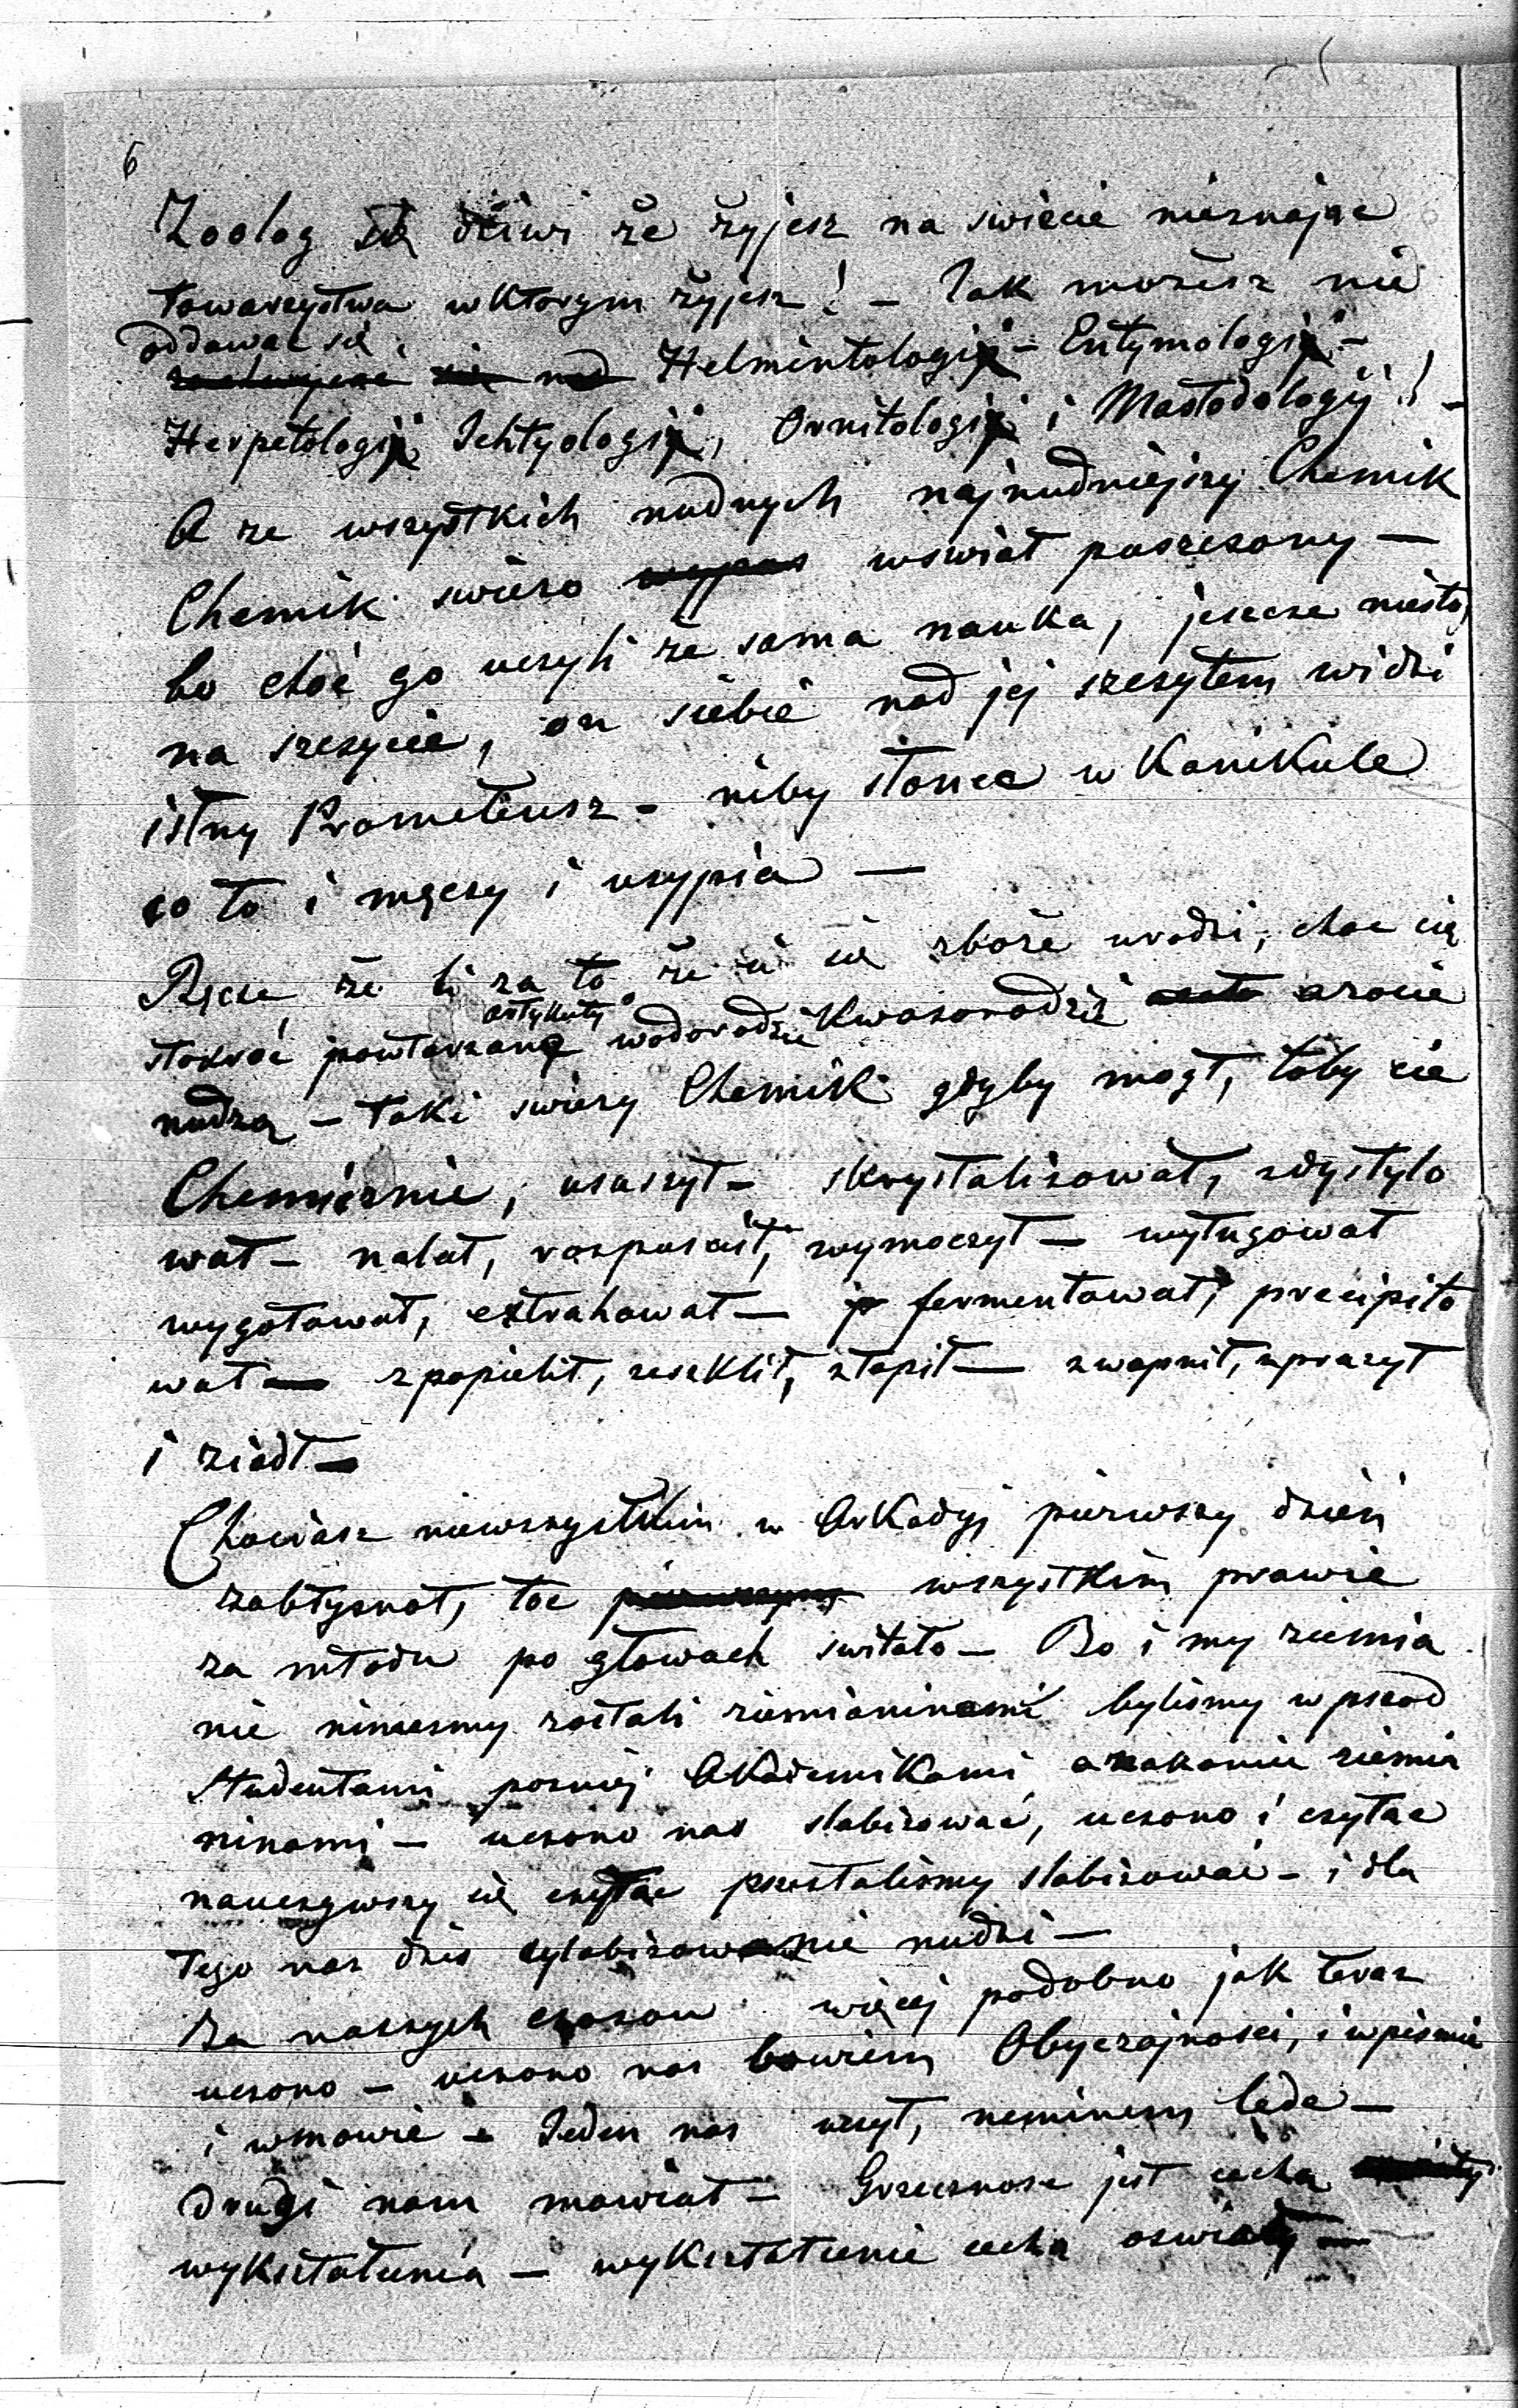 6
Zoolog się dziwi że żyjesz na swiecie nieznając
towarzystwa wktorym żyjesz! – Jak możesz nie
oddawac się
się nad Helmintologij – Entymologij –
Herpetologij, Ichtyologij, Ornitologij i Mastodologij! –
A ze wszystkich nudnych najnudniejszy Chemik
Chemik swieżo wswiat puszczony –
bo choć go uczyli że sama nauka, jeszcze niestoj
na szczycie, on siebie nad jej szczytem widzi
istny Prometeusz – niby słonce w Kanikule
co to i męczy i usypia –
Ręczę, że li za to że ci się zboże urodzi, choc cię
artykuły
stokroć powtarzane wodorodzie Kwasorodzie azocie
nudzą – taki swieży Chemik gdyby mogł, toby cie
Chemicznie, ususzył – skrystalizował, zdystylo
wał – nalał, rozpuscił, wymoczył – wyługował
wygotował, extrahował – fermentował, precipito
wał – zpopielił, zeszklił, stopił – zwapnił, uprazył
i ziadł –
Chociasz niewszystkim w Arkadyj pierwszy dzień
zabłysnoł, toc pierwszym wszystkim prawie
za młodu po głowach switało – Bo i my ziemia
nie nimesmy zostali ziemianinami bylismy wprzod
Studentami pozniej Akademikami anakoniec ziemia
ninami – uczono nas slabizować, uczono i czytac
nauczywszy się czytac przestalismy slabizować – i dla
tego nas dzis sylabizowanie nudzi –
Za naszych czasow więcej podobno jak teraz
uczono – uczono nas bowiem Obyczajnosci, i wpismie
i wmowie – Jeden nas uczył, neminem lede –
drugi nam mowiał – Grzecznosc jest cecha
wykształcenia – wykształcenie cecha oswiaty –